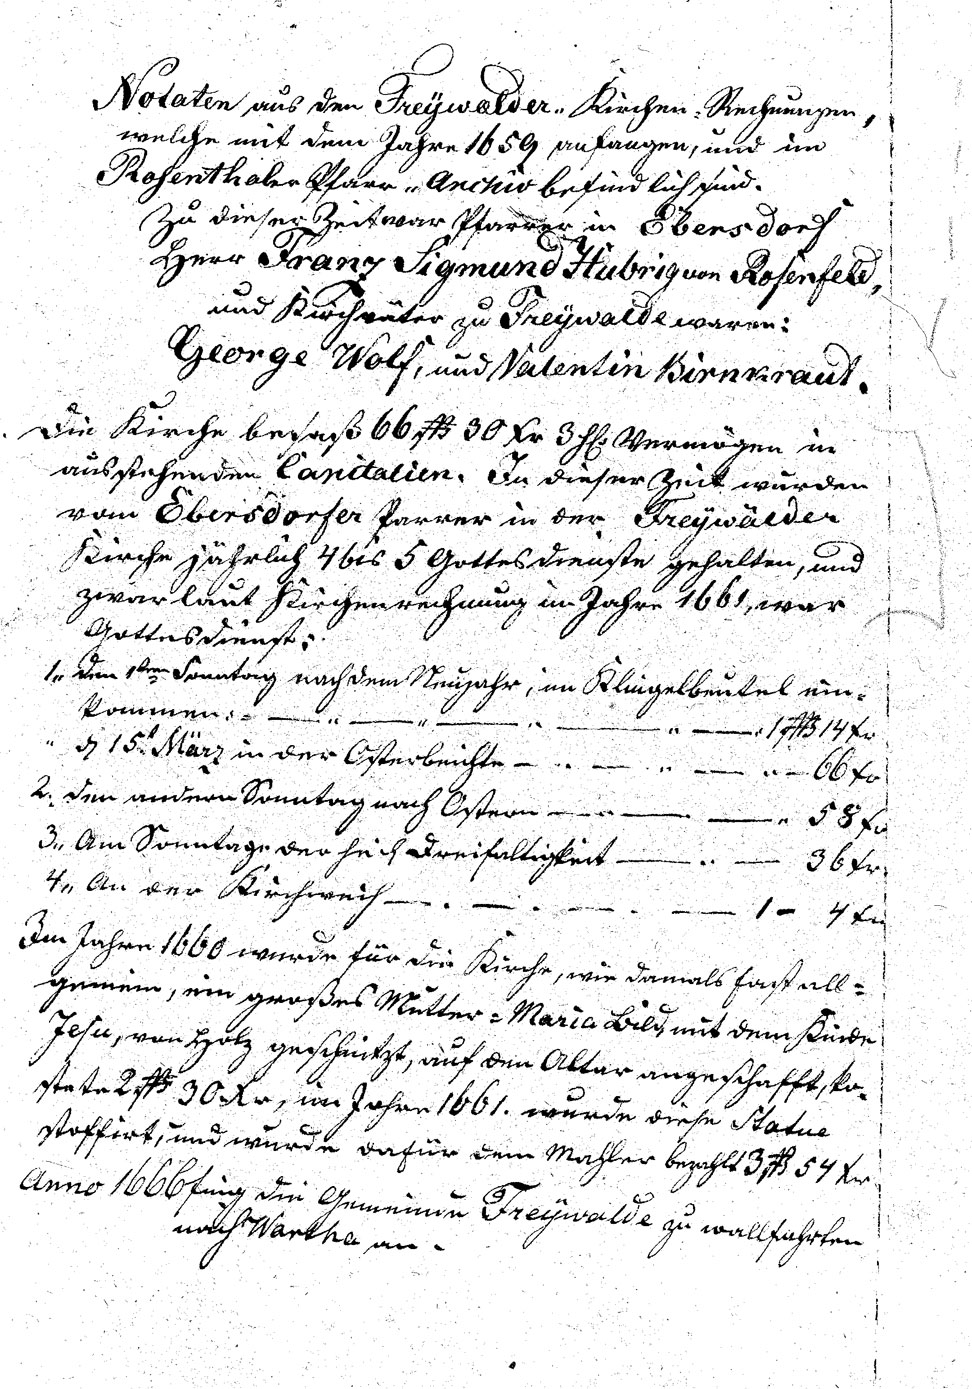 Notaten aus den Freÿwalder Kirchen-Rechnungen,
welche mit dem Jahre 1659 anfangen, und im
Rosenthaler Pfarr-Archiv befindlich sind.
Zu dieser Zeit war Pfarrer in Ebersdorf
Herr Franz Sigmund Hubrig von Rosenfeld,
und Kirchväter zu Freÿwalde waren:
George Wolf, und Valentin Birnkraut.
Die Kirche besaß 66 30 Kr 3 hl. Vermögen in
ausstehenden Capitalien. In dieser Zeit wurden
vom Ebersdorfer Parrer in der Freÿwälder
Kirche jährlich 4 bis 5 Gottesdienste gehalten, und
zwar laut Kirchenrechnung im Jahre 1661, war
Gottesdienst:
1. den 1ten Sonntag nach dem Neujahr, im Klingelbeutel ein-
kommen: 1 14 kr
" d 15t März in der Osterbeichte 66 kr
2. den andern Sonntag nach Ostern 58 kr
3. Am Sonntage der heil Dreifaltigkeit 36 kr.
4. An der Kirchweih 1 - 4 kr
Im Jahre 1660 wurde für die Kirche, wie damals fast all-
gemein, ein großes Mutter-Maria Bild mit dem Kinde
Jesu, von Holz geschnitzt, auf den Altar angeschafft, ko-
stete 2 30 Kr, im Jahre 1661. wurde diese Statue
stoffirt, und wurde dafür dem Mahler bezahlt 3 54 kr
Anno 1666 fing die Gemeinde Freÿwalde zu wallfahrten
nach Wartha an.